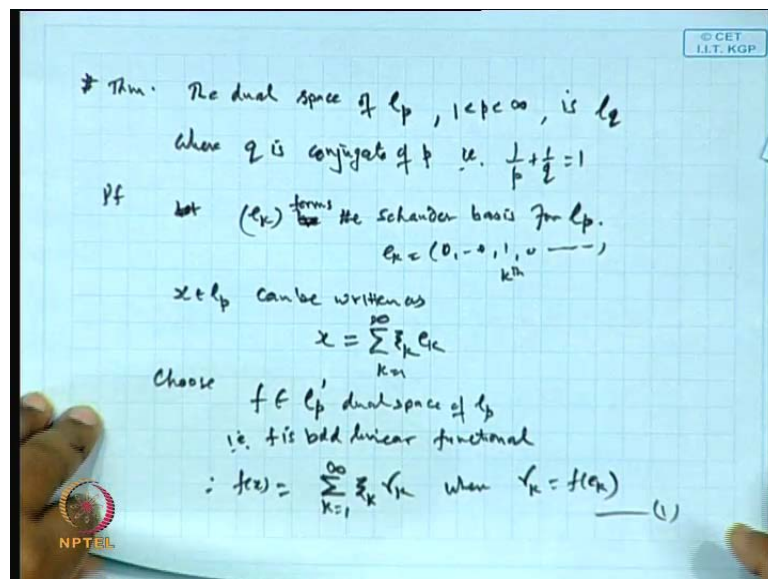 © CET
I.I.T. KGP
# Thm. The dual space of lp, 1<p<∞, is lq
Where q is conjugate of p ie. 1/p + 1/q = 1
Pf (ek) forms the schauder basis for lp.
ek = (0, - 0, 1, 0 ——— )
kth
x ∈ lp can be written as
x = ∑_{k=1}^{∞} ξk ek
Choose
f ∈ lp' dual space of lp
i.e. f is bdd linear functional
∴ f(x) = ∑_{k=1}^{∞} ξk γk when γk = f(ek)
——— (1)
NPTEL